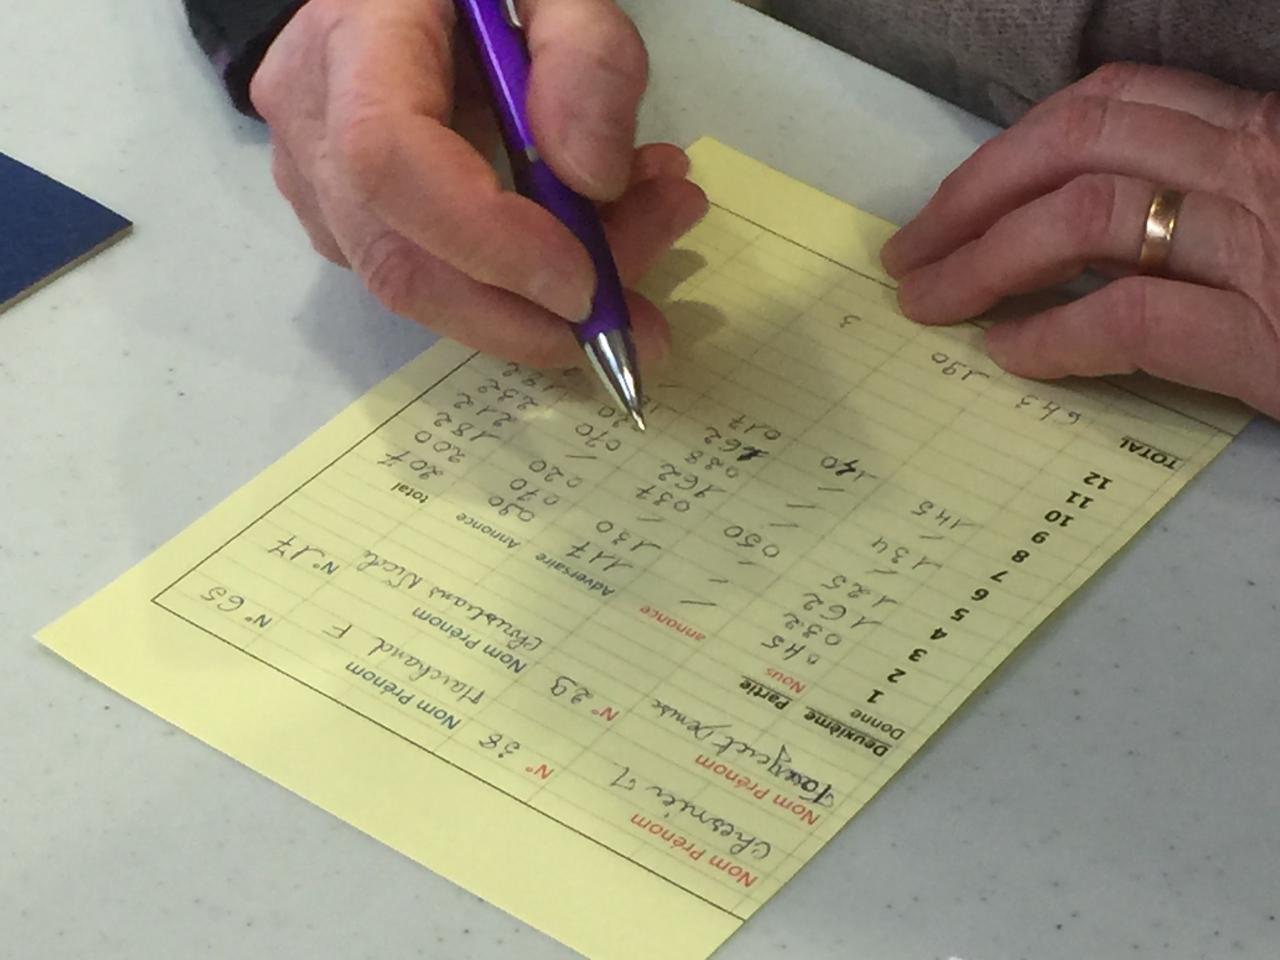 Nom Prénom N° 38 Nom Prénom N° 65
Chesnier Marchand F
Nom Prénom N° 29 Nom Prénom N° 17
Denise Christians Nicole
Deuxième Partie
Donne Nous annonce Adversaire Annonce total
1 045 / 117 090 207
2 032 / 130 070 200
3 162 050 /
4 125 / 037
5 / / 162 020 182
6 134 038 / 212
7 / 162 070 232
8 145 140 017 20 192
9
10
11
12
TOTAL 643 190 3